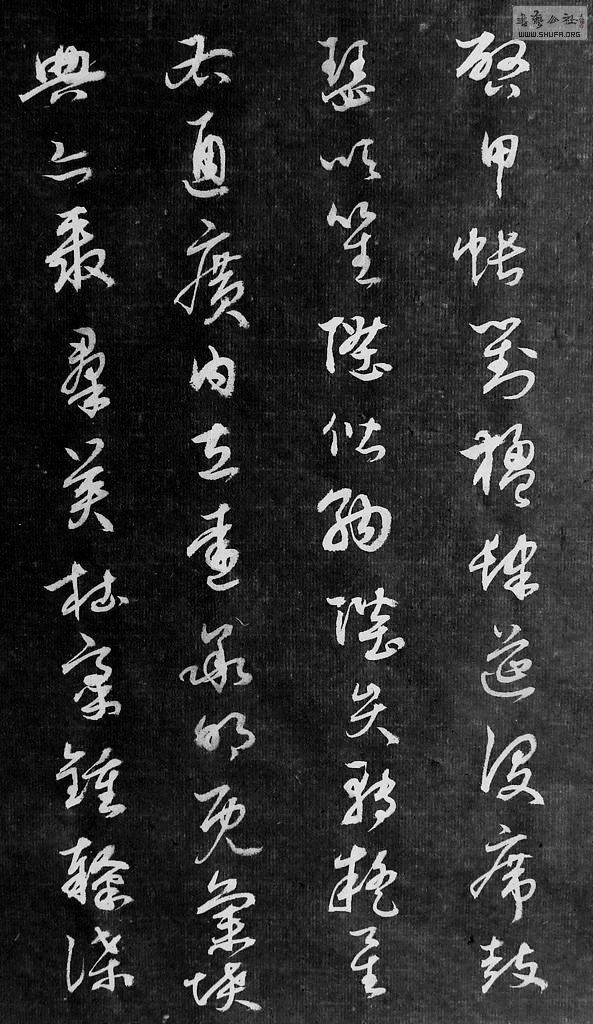 啓甲帳對楹肆筵設席鼓
瑟吹笙陞階納陛弁轉疑星
右通廣內左達承明既集墳
典亦聚羣英杜稾鍾隸漆
書藝公社
WWW.SHUFA.ORG